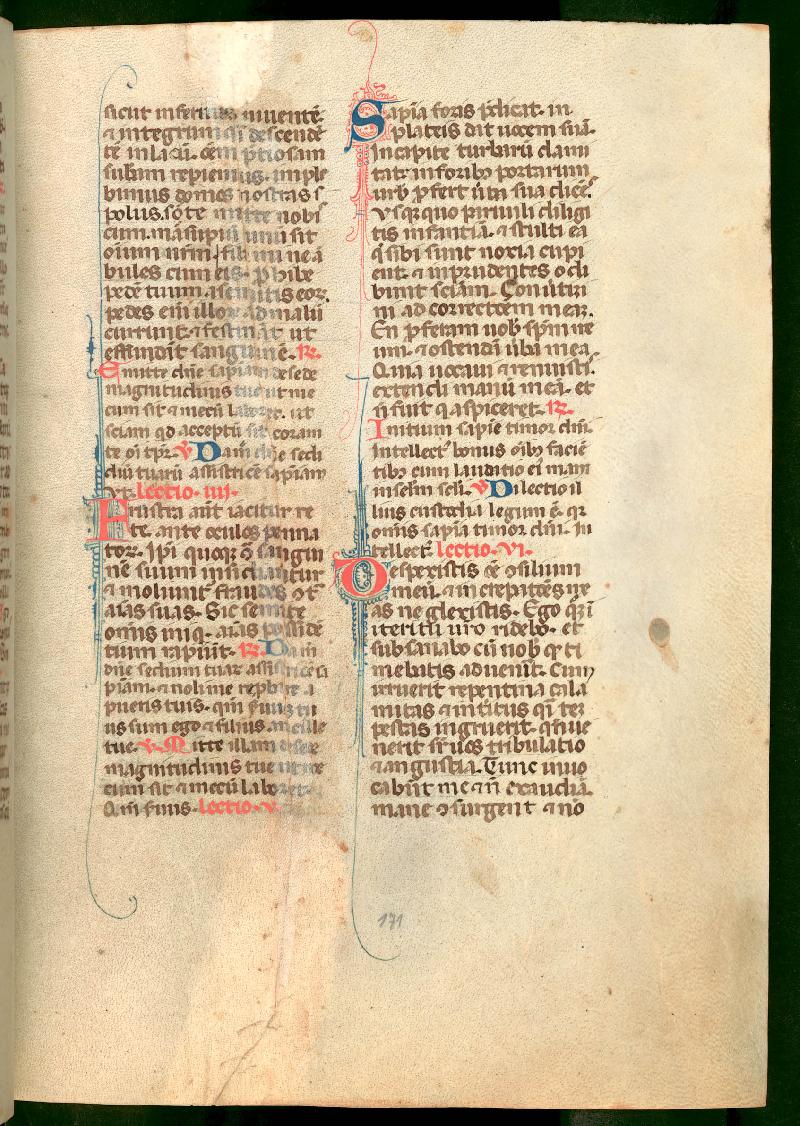 sicut infernus uiuentē.
⁊ integrum q̄si descendē
tē in lacū. Oēm p̄tiosam
subām̄ repiemus. imple
bimus domos nostras s
polus. sorte mitte nobis
cum. marsupiū unū sit
oīum nr̄m. fili mi ne ā
bules cum eis. Prohibe
pedē tuum a semitis eoꝝ.
pedes eī illoꝝ ad malū
currunt. ⁊ festināt ut
effundāt sanguinē. R.
Emitte dn̄e sapiām de sede
magnitudinis tue ut me
cum sit ⁊ mecū laboret. ut
sciam qd acceptū sit coram
te oī tpr̄. V Da m̄ dn̄e sedi
ū tuarū assistricē sapiām
ut. lectio. iiii.
Frustra aūt iacitur re
te. ante oculos penna
toꝝ. Ip̄i quoqꝫ ꝯ̄ sangui
nē suum insidiantur
⁊ moliunt̄ fraudes ꝯtᵃ
aīas suas. Sic semite
om̄is auari aīas possidē
tium rapiūt. R. Da m̄
dn̄e sedium tuaꝝ assistricē sa
piām. ⁊ noli me rep̄bare a
pueris tuis. qm̄ seruus tu
us sum ego ⁊ filius ancille
tue. V. Mitte illam de sede
magnitudinis tue ut me
cum sit ⁊ mecū laboret.
Qm̄ seruus. lectio. v.
Sapīa foris p̄dicat. in
plateis dat uocem suā.
In capite turbarū clami
tat. in foribꝫ portarum
urb̄ ꝓfert ūba sua dicēs.
Vsqꝫ quo paruuli diligi
tis infantiā. ⁊ stulti ea
q̄ sibi sunt noxia cupi
ent. ⁊ imprudentes odi
bunt sciām. Conūtimi
ni ad correctōem meā.
En ꝓferam uob̄ spm̄ me
um. ⁊ ostendā ūba mea
Quia uocaui ⁊ renuistis.
extendi manū meā. et
n̄ fuit q̇ aspiceret. R.
Initium sapīe timor dn̄i.
Intellect᷒ bonus oībꝫ faciē
tibꝫ eum laudatio eī man
in sc̄lm sc̄li. V Dilectio il
lius custodia legum ē. qꝛ
om̄is sapīa timor dn̄i. In
tellect᷒. lectio. vi.
Despexistis om̄e ꝯsilium
meū. ⁊ increpatōes me
as neglexistis. Ego q̇ꝫ ī
interitu uro ridebo. et
subsanabo cū uob̄ qd̄ ti
mebatis aduenit. Cum
irruerit repentina cala
mitas ⁊ interitus q̄si tem
pestas ingruerit. qn̄ ue
nerit sr̄ uos tribulatio
⁊ angustia. Tunc inuo
cabūt me ⁊ n̄ exaudiā.
mane ꝯsurgent ⁊ nō
171